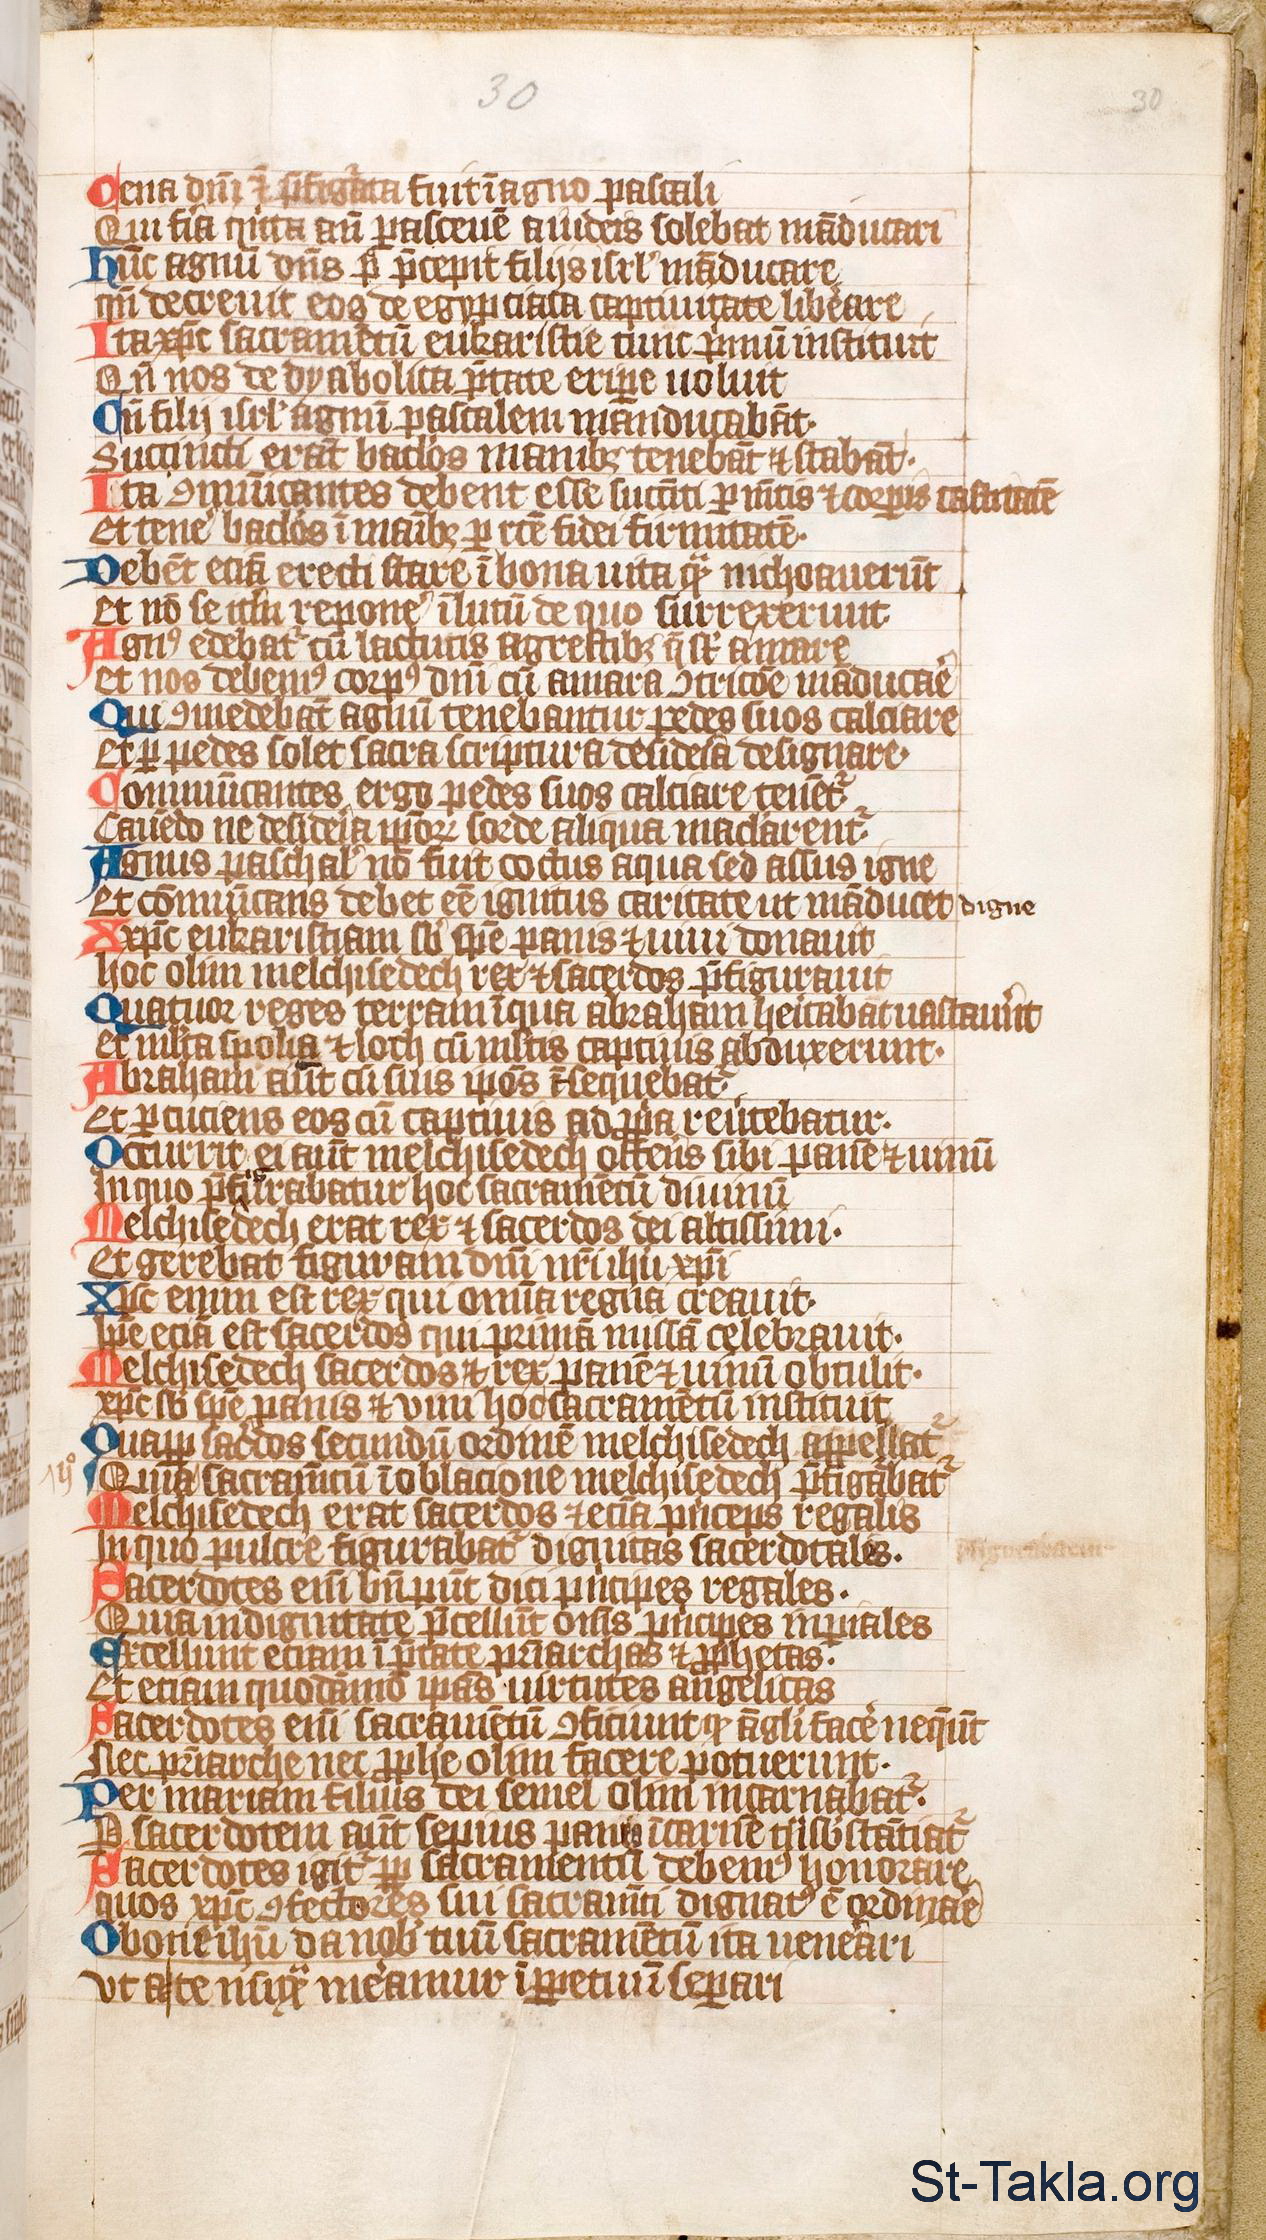 30
30
Cena dñi ⁊ p̄figᷓata fuit ī agno pascali
Qui fīa q̇nta an̄ pasceuē a iudeis solebat māducari
hūc agnū dn̄s p̄cepit filijs isrl' māducare
qn̄ decreuit eos de egypciaca captiuitate libeare
Ita xp̄c sacramētū eukaristie tunc p̄mū instituit
Qn̄ nos de dyabolica p̄tate eriꝑe uoluit
Cū filij isrl' agnū pascalem manducabāt·
Succincti erāt baclōs manibꝫ tenebāt ⁊ stabāt·
Ita ꝯmūicantes debent esse succīti ꝑ m̄tis ⁊ corꝑis castitatē
Et tene' baclōs ī manibꝫ ꝑ rc̄e fidei firmitatē·
Debēt eciā erecti stare ī bona uita qᷓ inchoauerūt
et nō se itꝫ repone' ī lutū de quo surrexerunt
Agnꝰ edebat᷑ cū lactucis agrestibꝫ q̄ st̄ amare
et nos debemꝰ corpꝰ dñi cū amara ꝯtricōe māducae'
Qui ꝯmedebāt agnū tenebantur pedes suos calciare
Et ꝑ pedes solet sacra scriptura desideria designare·
Comunicantes ergo pedes suos calciare tenēt᷑
Cauēdo ne desideria ip̄oꝝ sorde aliqua maclarent᷑
Agnus paschal' nō fuit coctus aqua sed assus igne
Et comūicans debet eē ignitus caritate ut māducet digne
Xp̄c eukaristiam sb̄ sp̄e panis ⁊ uini donauit
hoc olim melchisedech rex ⁊ sacerdos p̄figurauit
Quatuor reges terram ī qua abraham hēitabat uastauer̄t
et ml̄ta spolia ⁊ loth cū ml̄tis captiuis abduxerunt·
Abraham aūt cū suis ip̄os īsequebat᷑
Et ꝑcuciens eos cū captiuis ad ꝓpīa reūtebatur·
Occurrit ei aūt melchisedech offens sibi panē ⁊ uinū
In quo p̄figurabatur hoc sacramētū diuinū
Melchisedech erat rex ⁊ sacerdos dei altissimi·
Et gerebat figuram dñi nr̄i ihū xp̄i
Xp̄c enim est rex qui omīa regna creauit·
Ip̄e eciā est sacerdos qui primā missā celebrauit·
Melchisedech sacerdos ⁊ rex panē ⁊ uinū obtulit·
xp̄c sb̄ sp̄e panis ⁊ vini hoc sacramētū instituit
Quaꝓp̄ sac̄dos secundū ordinē melchisedech appellat᷑
Quia sacram̄tū ī oblacione melchisedech p̄figᷓbat᷑
Melchisedech erat sacerdos ⁊ eciā p̄nceps regalis
In quo pulcre figurabat᷑ dignitas sacerdotalis·
Sacerdotes eni bn̄ pn̄t dici p̄ncipes regales·
Quia in dignitate p̄cellūt om̄s p̄ncipes inꝑiales
Excellunt etiam ī p̄tate pr̄iarchas ⁊ ꝓphetas·
Et etiam quodāmō ip̄as uirtutes angelicas
Sacerdotes eni sacramētū ꝯficiunt qᷓ āgli face' neq̄ūt
Nec pr̄iarche nec ꝓphe olim facere potuerunt·
Per mariam filius dei semel olim incarnabat᷑·
Ꝑ sacerdotem aūt sepius panis ī carnē t̄nssbstāciat᷑
Sacerdotes igit᷑ ꝓp̄ sacramentū debemꝰ honorare
quos xp̄c ꝯfectores sui sacram̄ti dignatꝰ ē ordinae'
O bone ihū da nob' tuū sacramētū ita ueneari
vt a te nūqᷓ meamur ī ꝑpetuū seꝑari
St-Takla.org